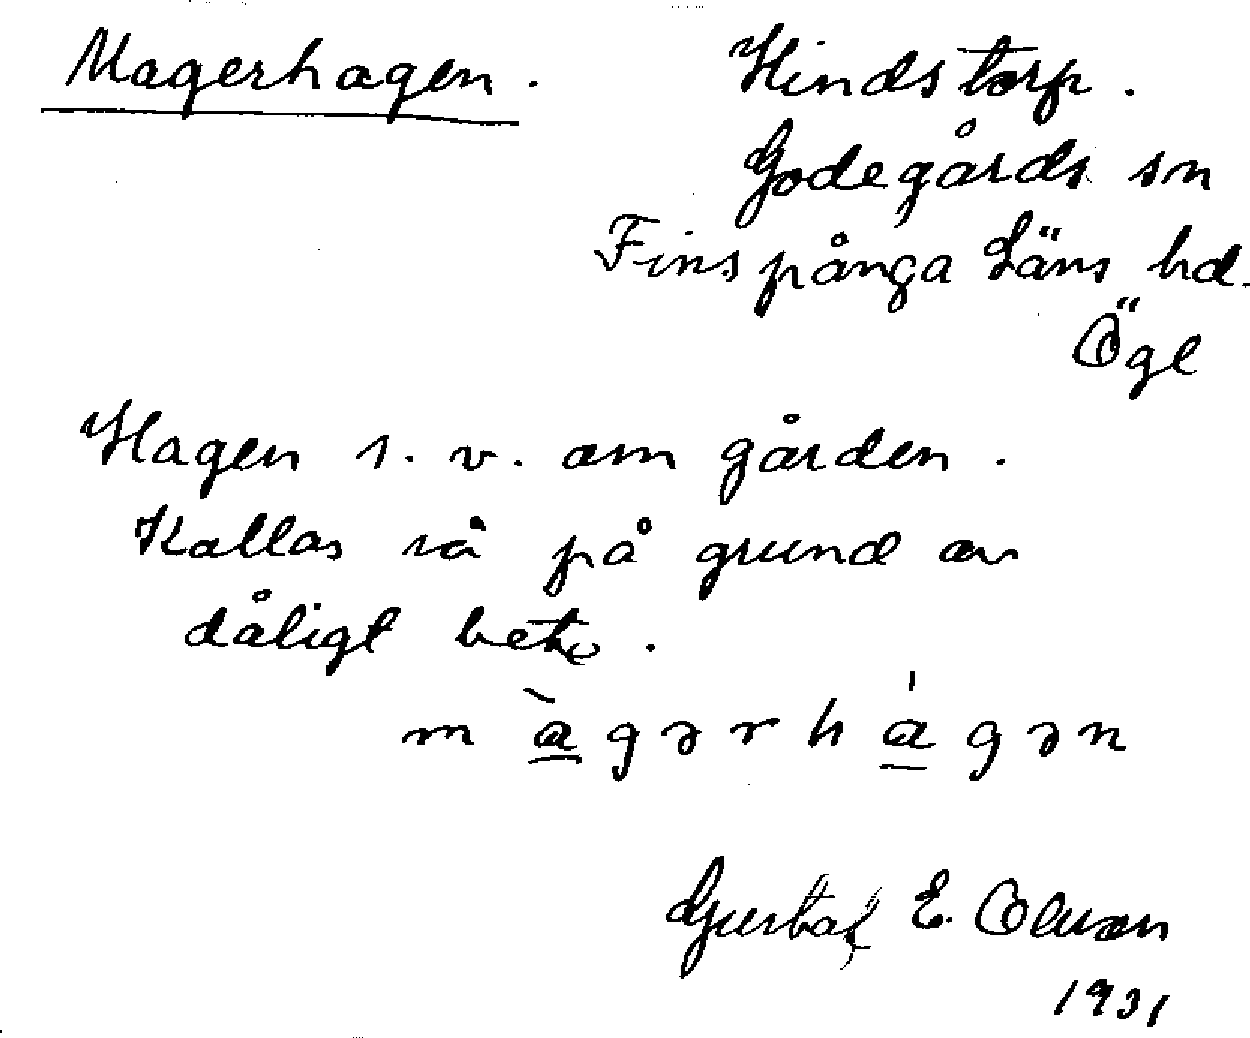 Magerhagen. Hindstorp.
Godegårds sn
Finspånga Läns hd.
Ögl
Hagen s.v. om gården.
Kallas så på grund av
dåligt bete.
m à̲ g ə r h á̲ g ə n
Gustaf E. Olsson
1931